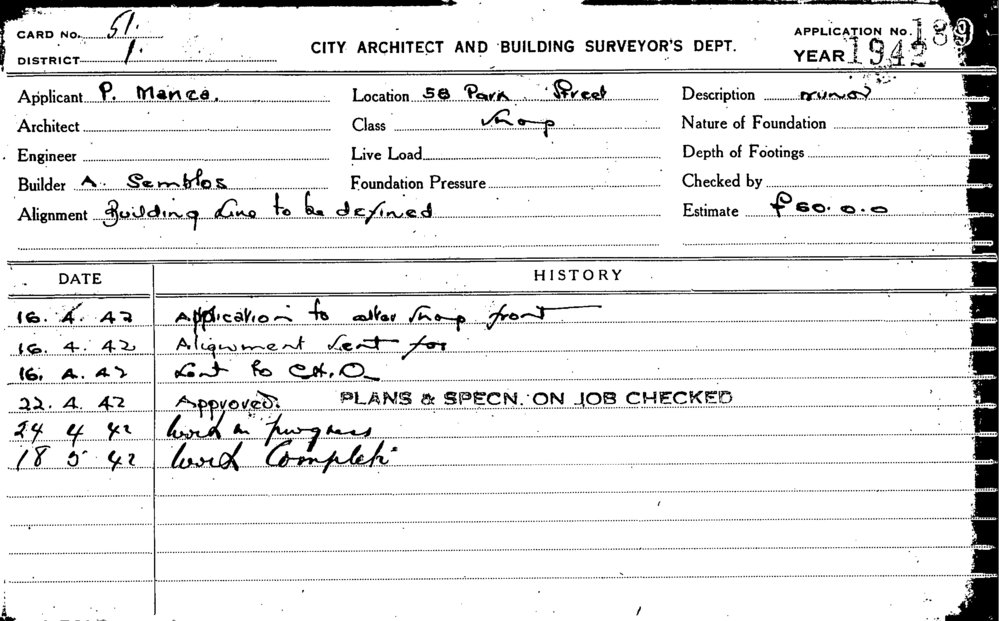 CARD No. 51.
DISTRICT 1.
CITY ARCHITECT AND BUILDING SURVEYOR'S DEPT.
APPLICATION No. 189
YEAR 1942
Applicant P. Manca. Location 58 Park Street Description minor
Architect Class Shop Nature of Foundation
Engineer Live Load Depth of Footings
Builder A. Semblos Foundation Pressure Checked by
Alignment Building Line to be defined Estimate £60.0.0
DATE HISTORY
16. 4. 42 Application to alter shop front
16. 4. 42 Alignment sent for
16. 4. 42 Sent to C.H.O.
22. 4. 42 Approved. PLANS & SPECN. ON JOB CHECKED
24 4 42 work in progress
18 5 42 work Complete